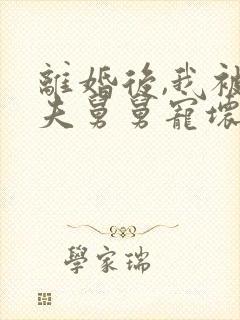 離婚後,我被
夫舅舅寵壞
學家瑞